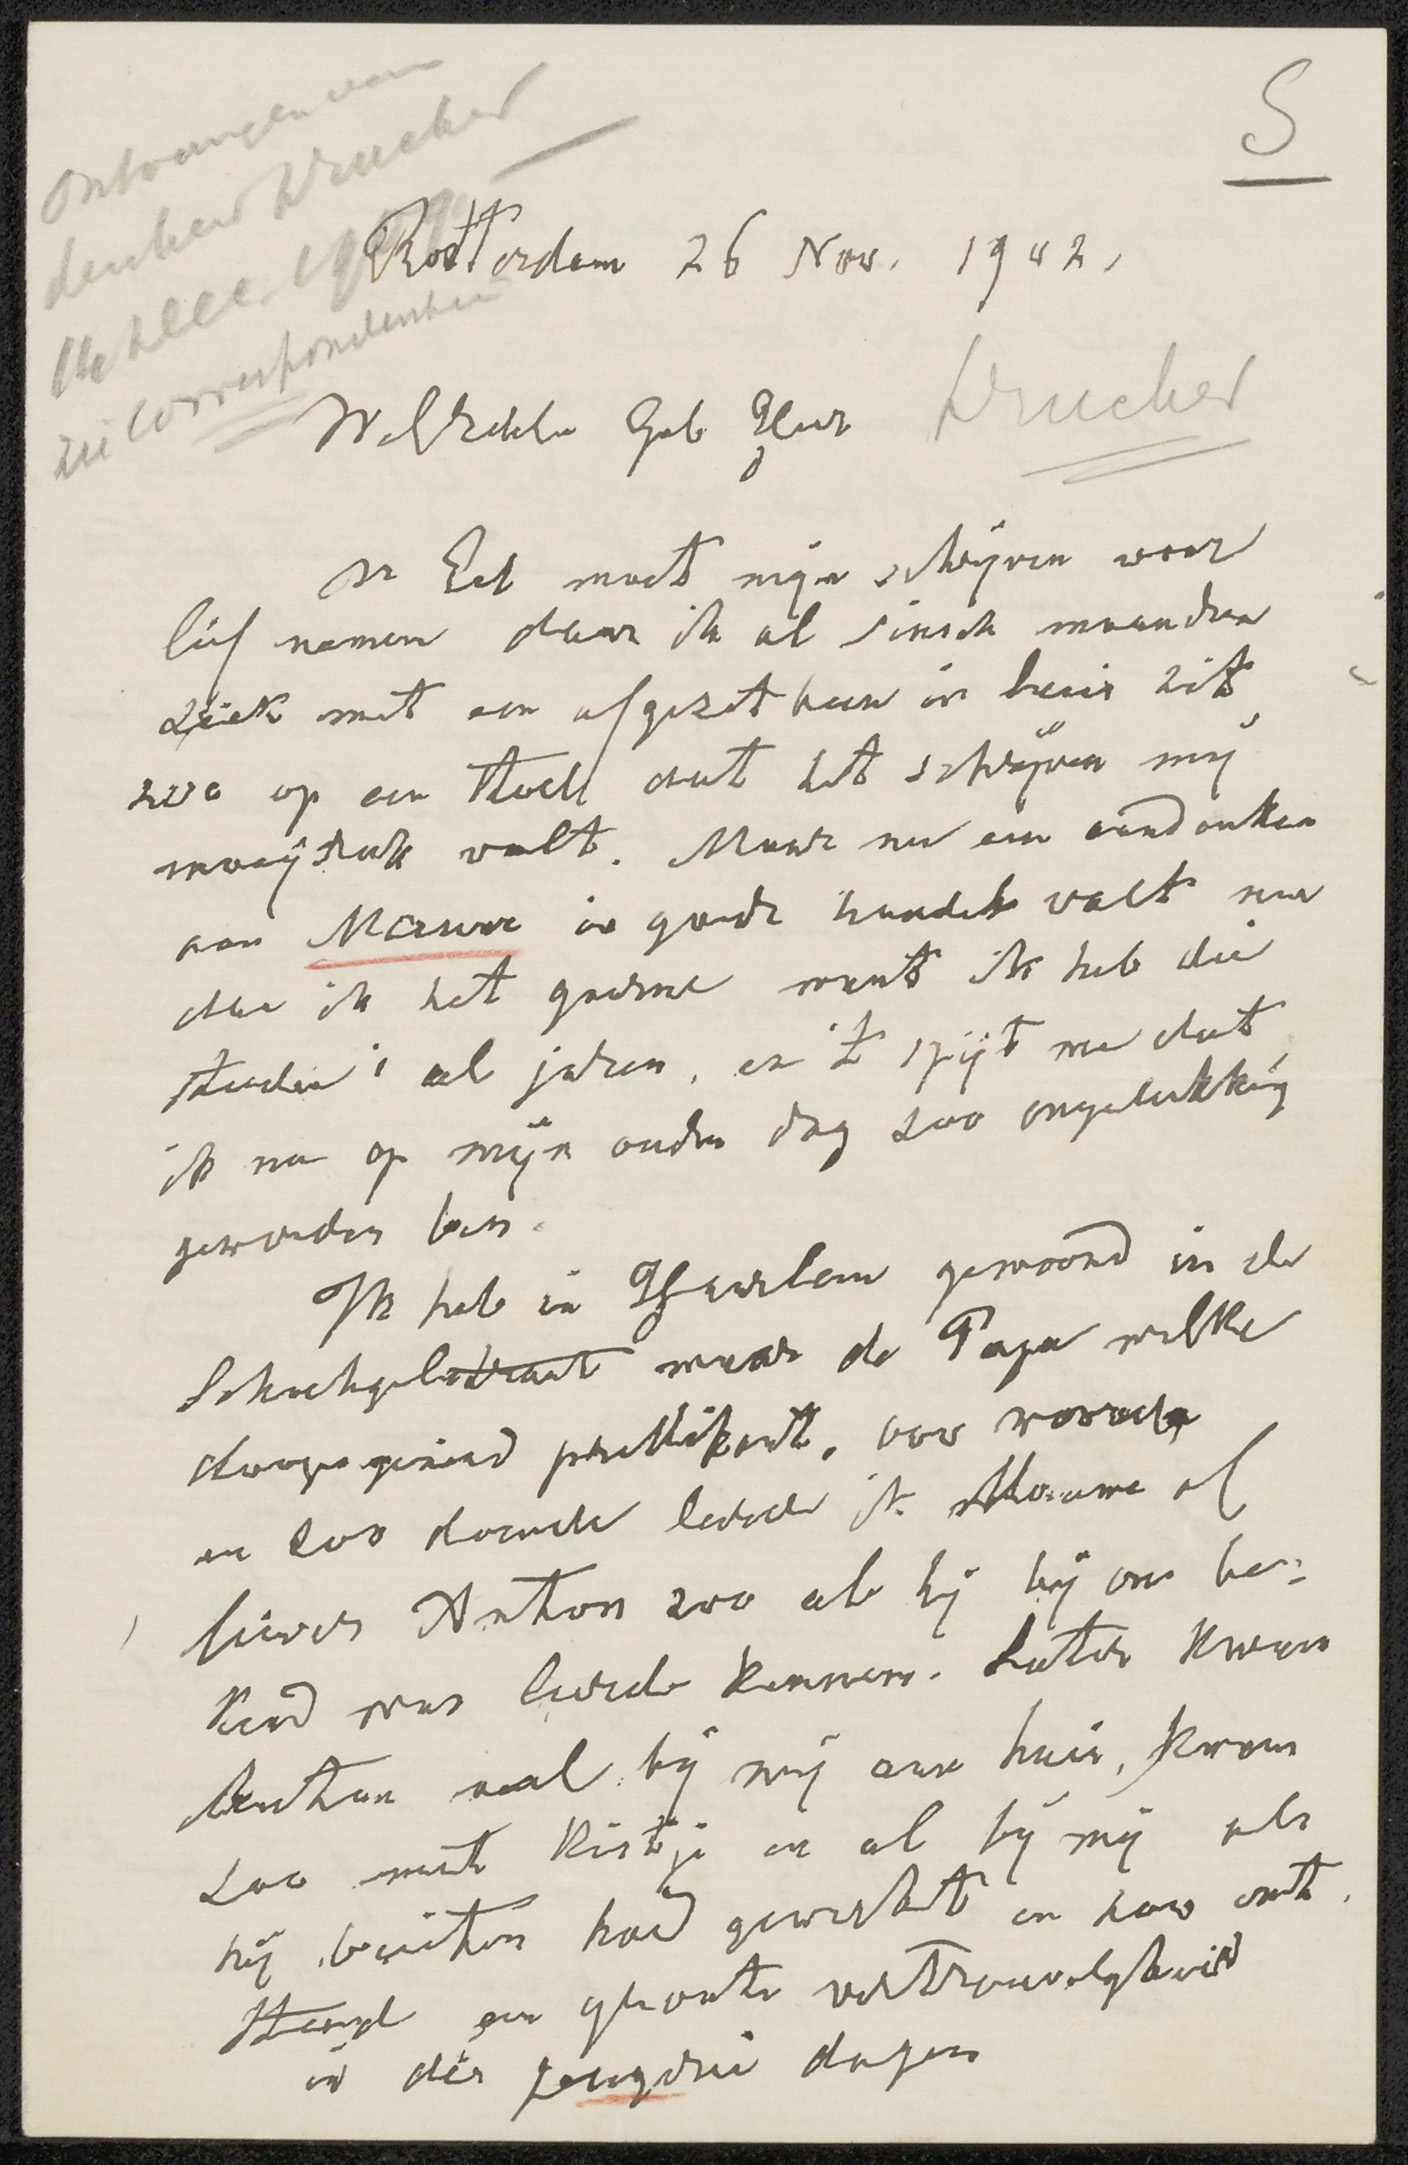 ontvangen van
den heer Drucker
1902
zie correspondentie
S
Rotterdam 26 Nov. 1902.
WelEdele Geb Heer
Drucker
U Ed moet mijn schrijven voor
lief nemen daar ik al sinds maanden
ziek met een afgezet been in huis zit
zoo op een stoel dat het schrijven mij
moeijelijk valt. Maar nu een aandenken
aan Mauve in goede handen valt nu
doe ik het gaarne want ik heb die
studie's al jaren, en 't spijt me dat
ik nu op mijn ouden dag zoo ongelukkig
geworden ben.
Ik heb in Haarlem gewoond in de
Schachgelstraat waar de Papa welke
doopsgezind predikant, was woonde
en zoo doende leerde ik Mauve of
liever Anton zoo als hij bij ons be-
kend was leerde kennen. Later kwam
Anton veel bij mij aan huis, kwam
zoo met kistje en al bij mij als
hij buiten had gewerkt en zoo ont
stond een groote vertrouwelijkheid
in die jeugdie dagen